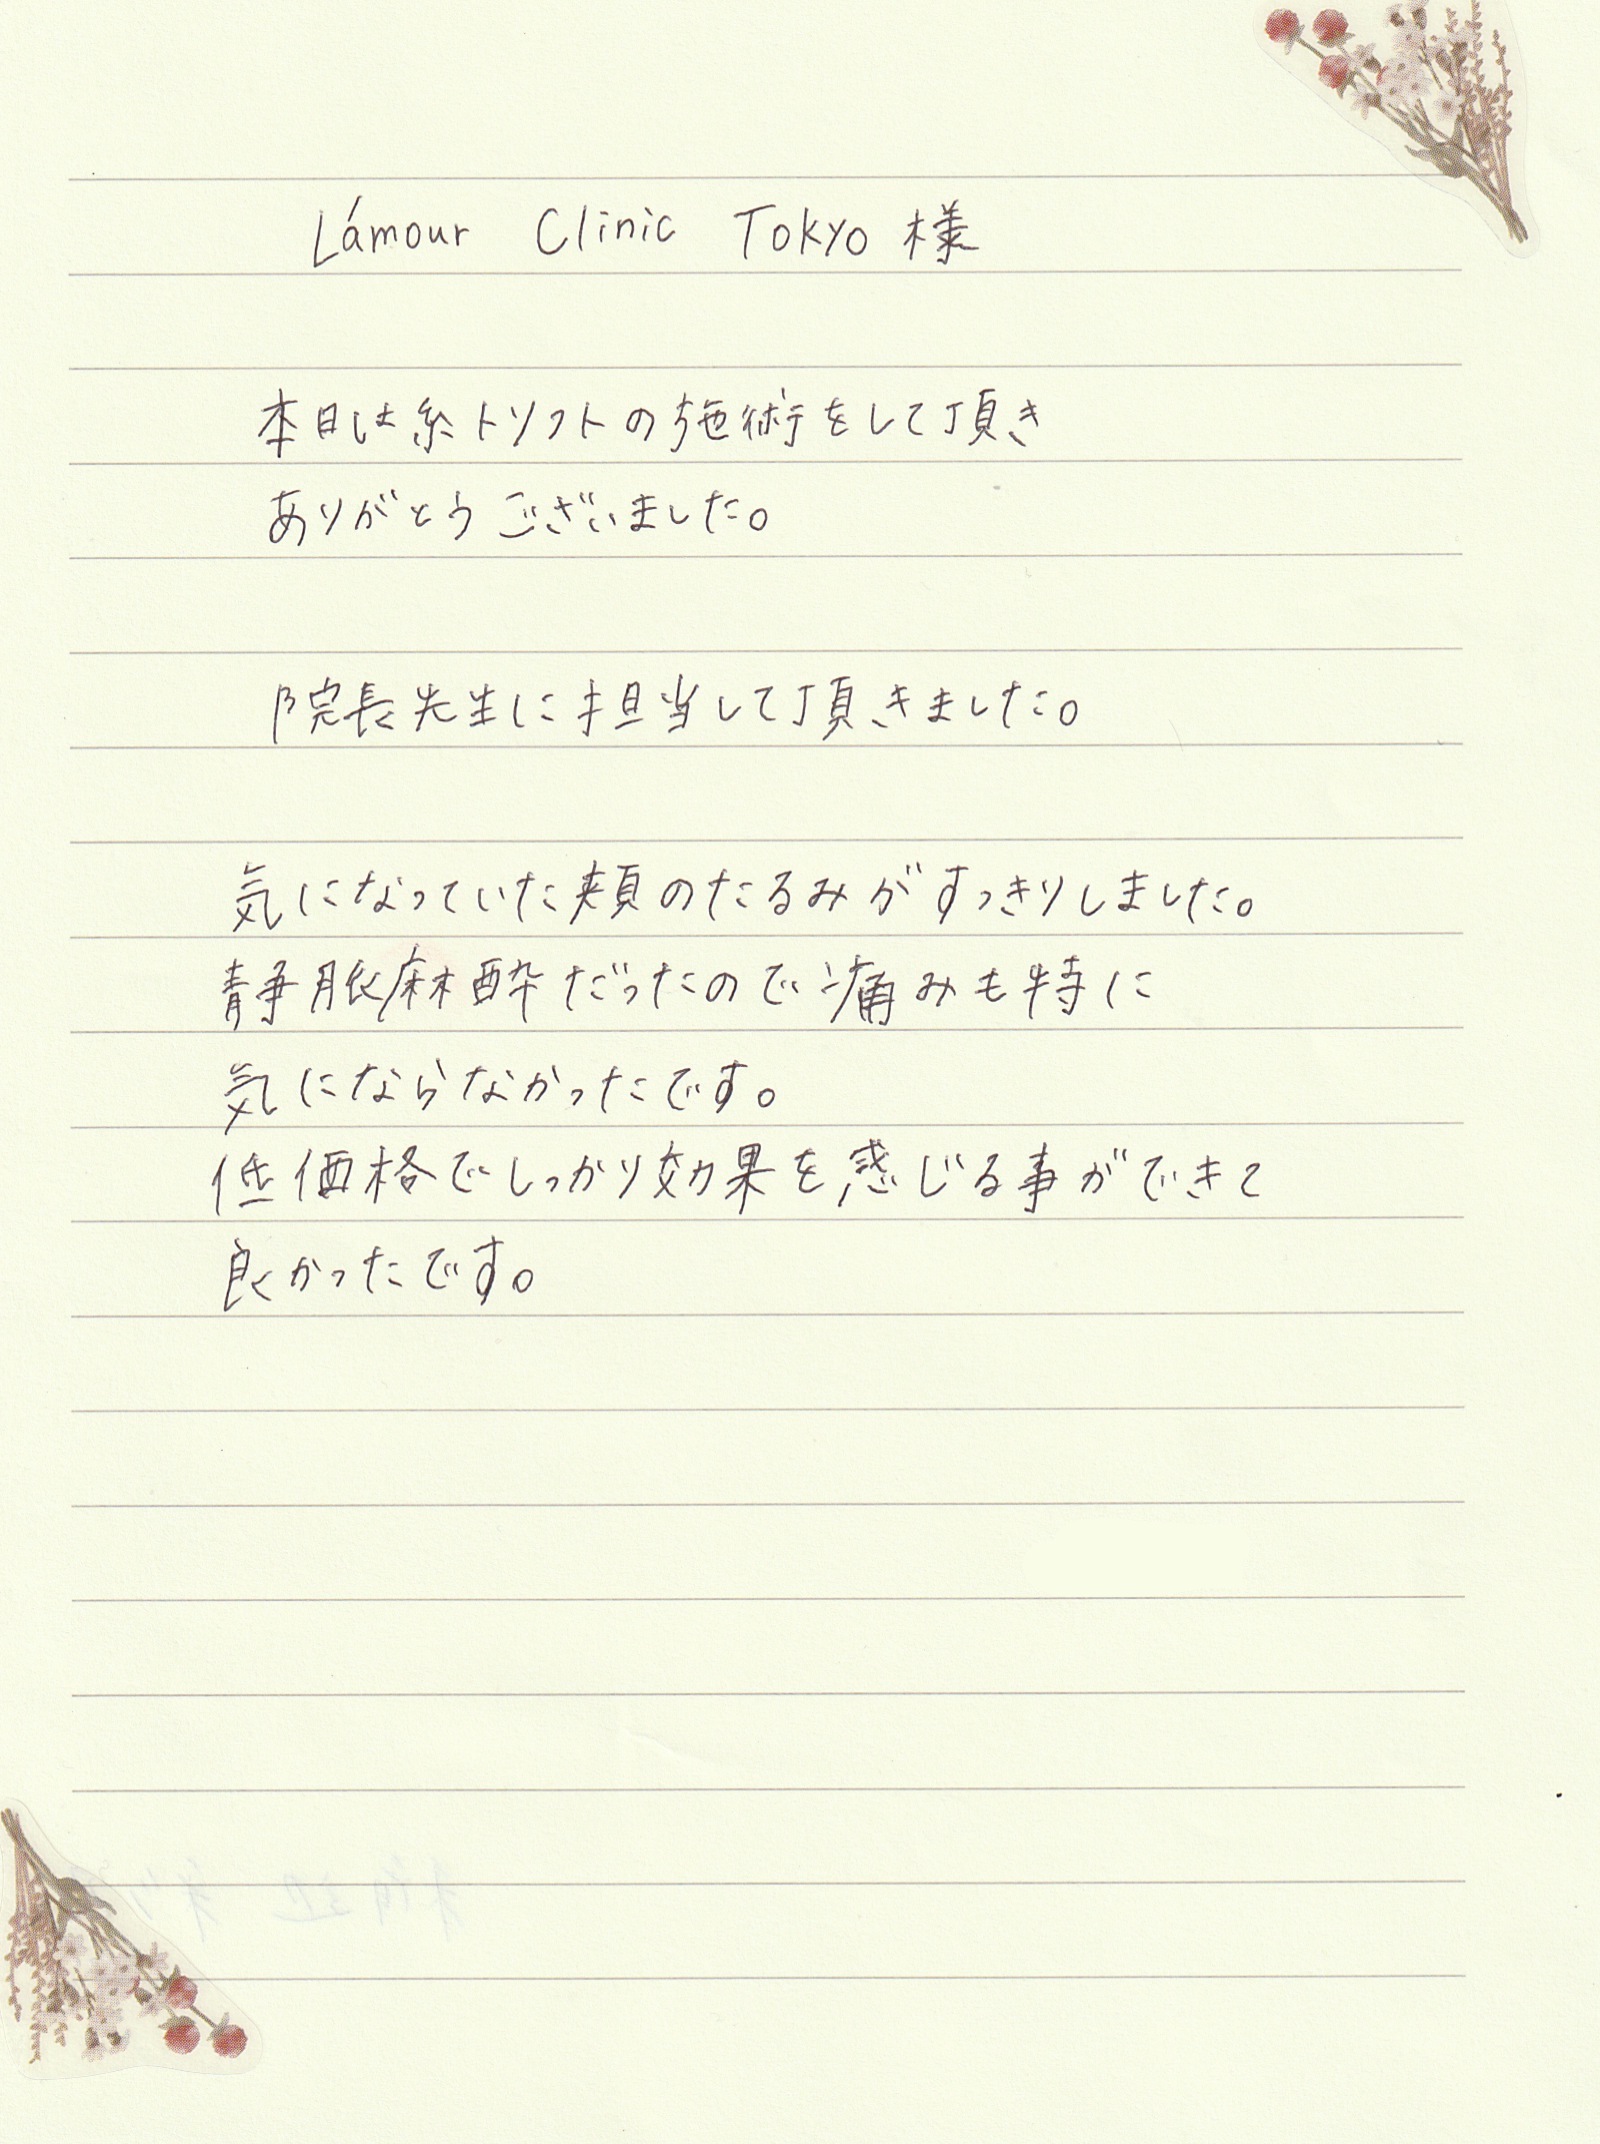 Lámour Clinic Tokyo 様
本日は糸トリフトの施術をして頂き
ありがとうございました。
院長先生に担当して頂きました。
気になっていた頬のたるみがすっきりしました。
静脈麻酔だったので痛みも特に
気にならなかったです。
低価格でしっかり効果を感じる事ができて
良かったです。